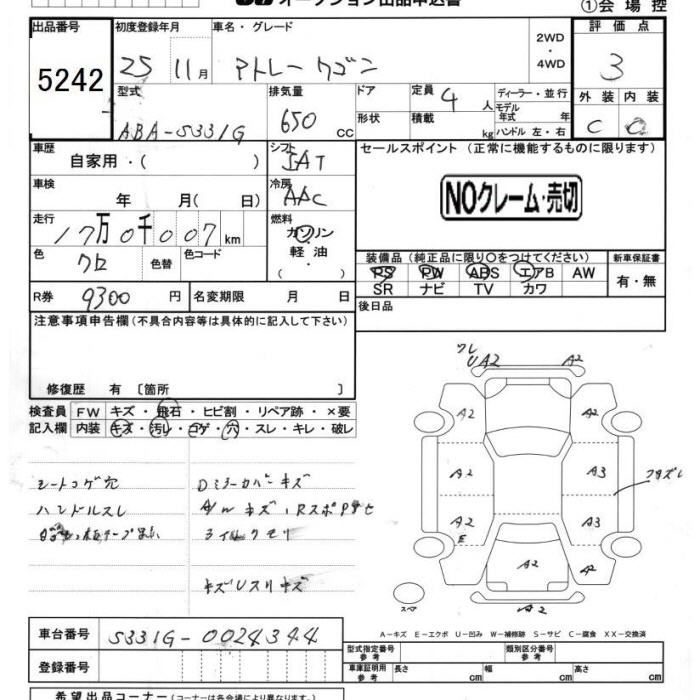 オークション出品申込書
①会場控
出品番号 初度登録年月 車名・グレード 2WD・4WD 評価点
5242 25 11月 アトレーワゴン 3
型式 排気量 ドア 定員 4人 ディーラー・並行 外装 内装
ABA-S331G 650 cc 形状 積載 kg モデル年式 年 ハンドル 左・右 C
車歴 自家用・( ) シフト IAT セールスポイント (正常に機能するものに限ります)
車検 年 月( 日) 冷房 AAC NOクレーム・売切
走行 17万0千007km 燃料 ガソリン・軽油・
色 クロ 色替 色コード 装備品 (純正品に限り〇をつけてください) 新車保証書
PS PW ABS エアB AW 有・無
SR ナビ TV カワ
R券 9300円 名変期限 月 日 後日品
注意事項申告欄 (不具合内容等は具体的に記入して下さい)
修復歴 有 〔箇所 〕
検査員 FW キズ・飛石・ヒビ割・リペア跡・×要
記入欄 内装 キズ・汚レ・コゲ・穴・スレ・キレ・破レ
シートコゲ穴 Dミラーカバーキズ
ハンドルスレ A/Wキズ・
ライトクモリ
キズUスリキズ
ワレ
UA2 A2
A2 A2
A2 A3
A2 A3
E
A2 A2
A2
スペア
A-キズ E-エクボ U-凹み W-補修跡 S-サビ C-腐食 XX-交換済
車台番号 S331G-0024344
登録番号
型式指定番号 参考 類別区分番号 参考
車庫証明用 参考 長さ cm 幅 cm 高さ cm
希望出品コーナー (コーナーは各会場により異なります)